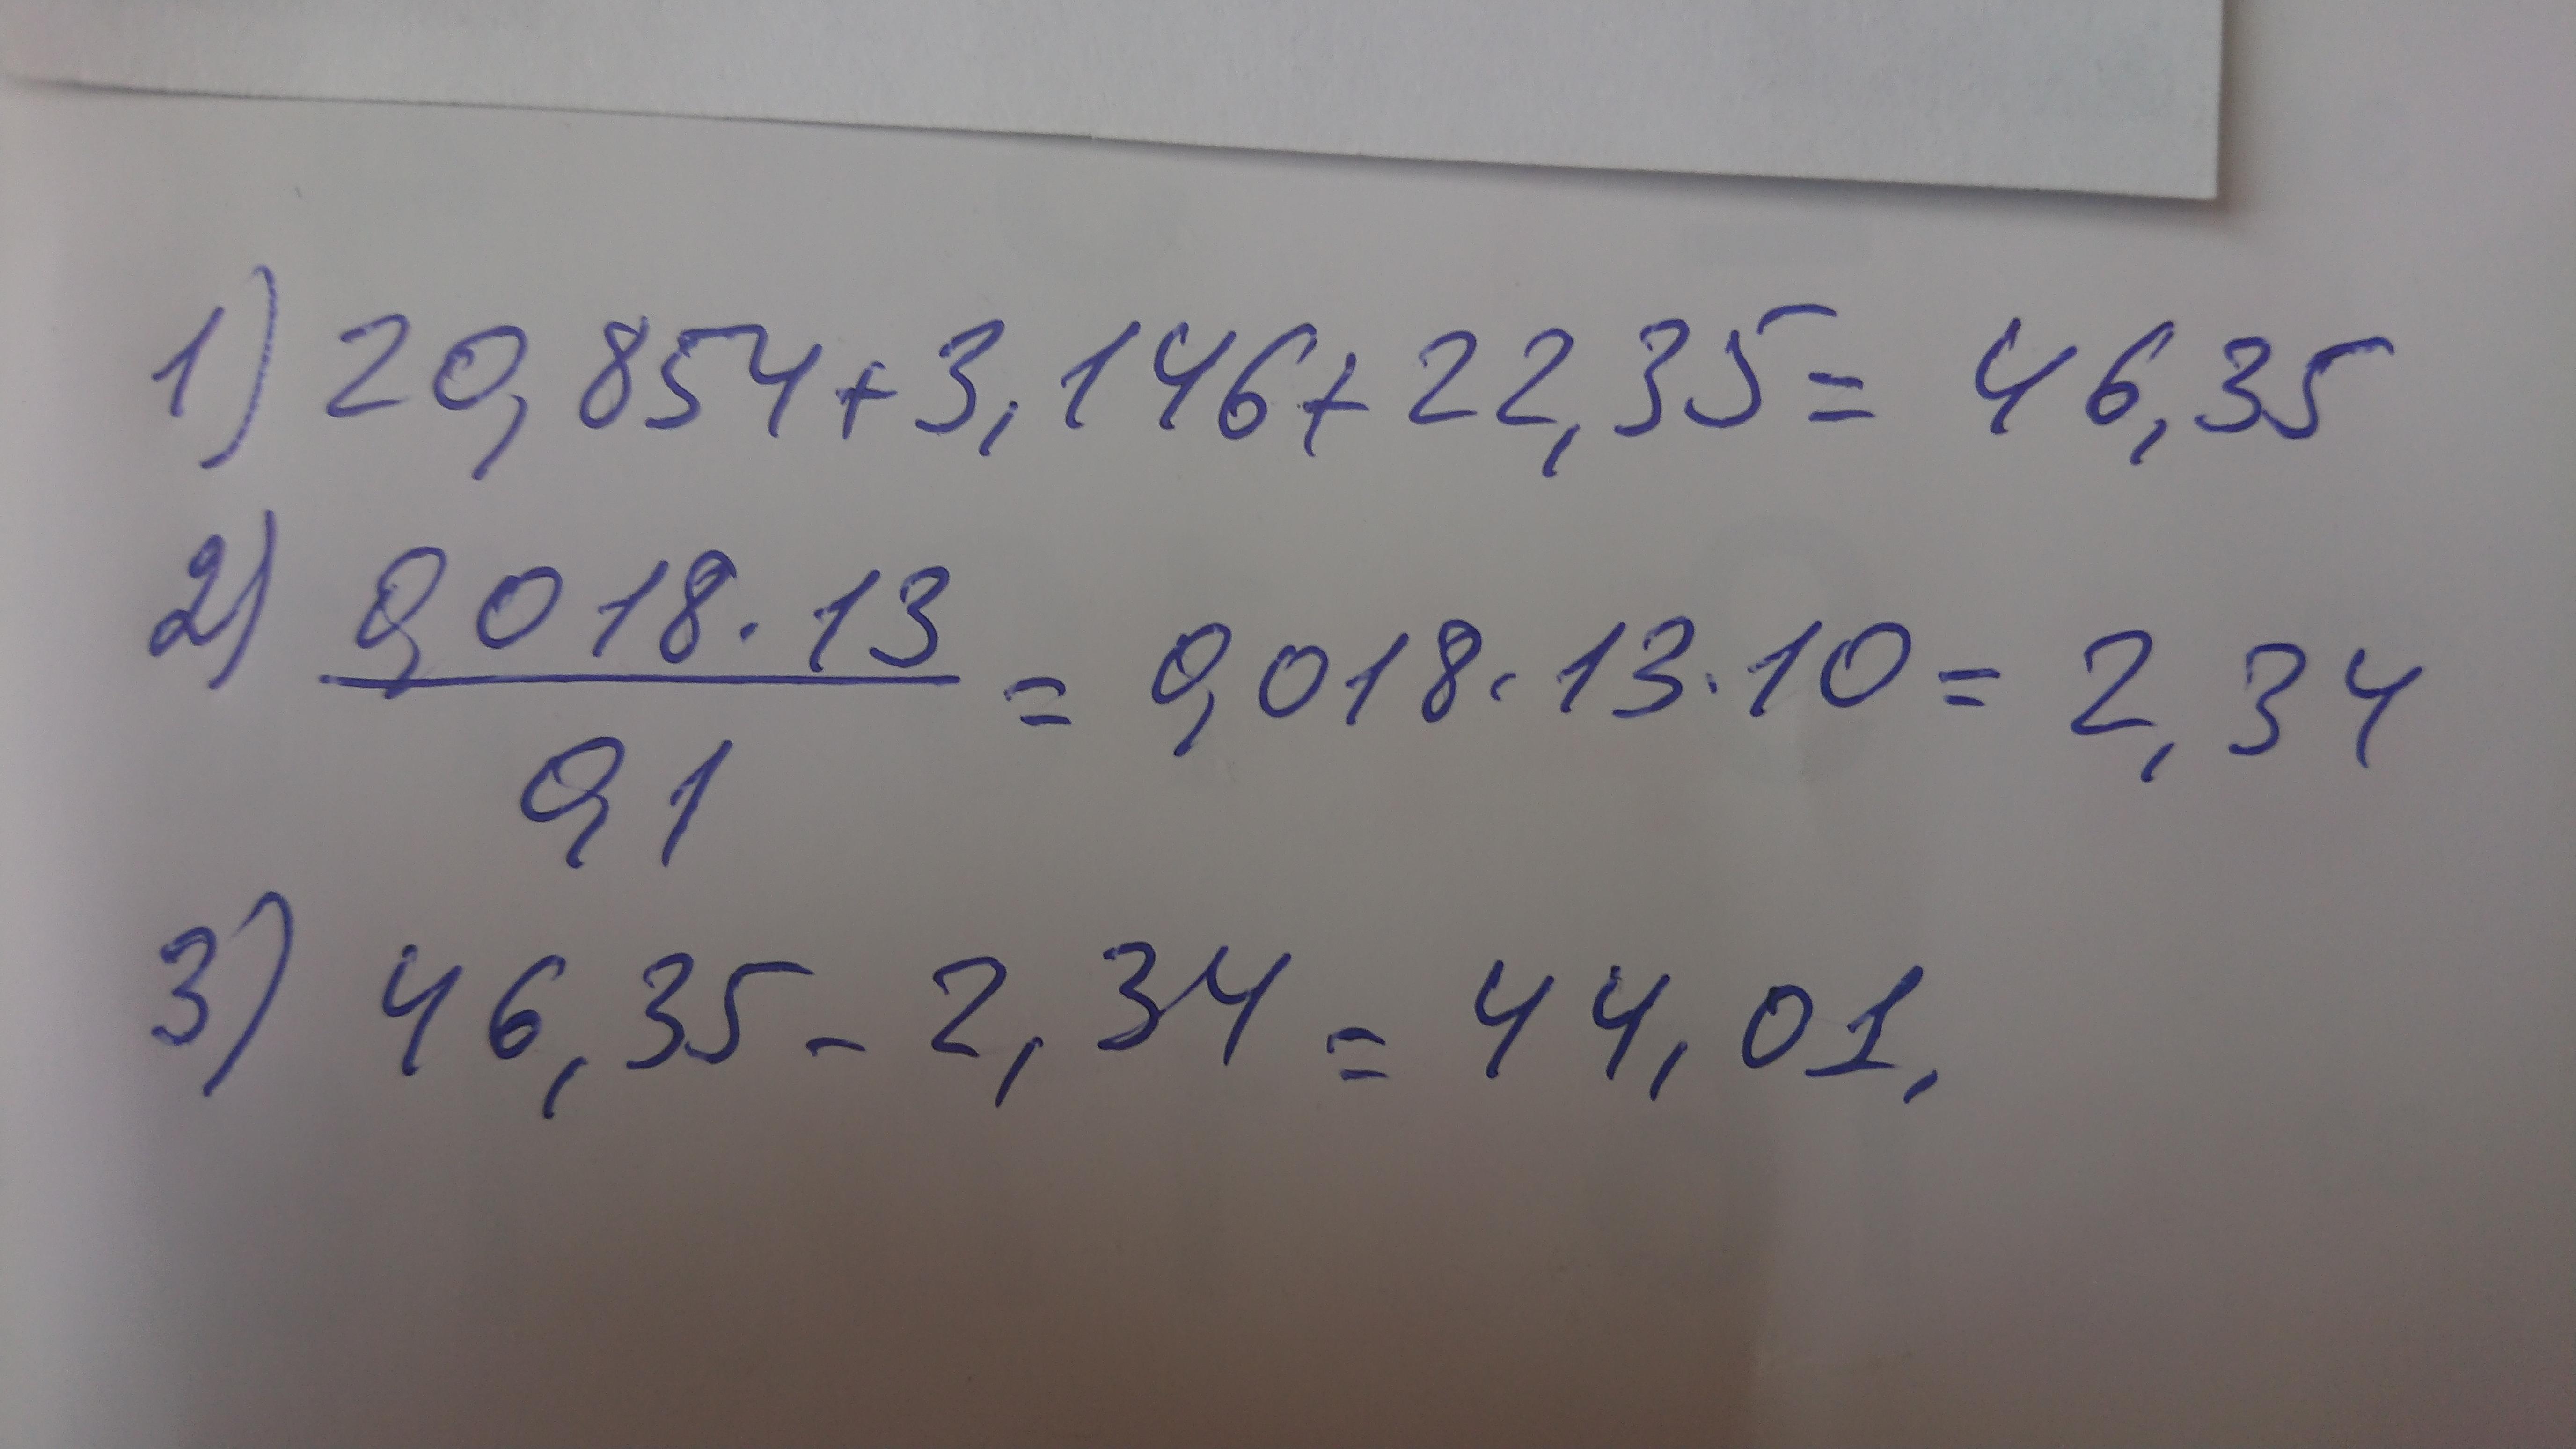 1) 20,854+3,146+22,35= 46,35
2) 0,018·13 / 0,1 = 0,018·13·10= 2,34
3) 46,35-2,34=44,01.